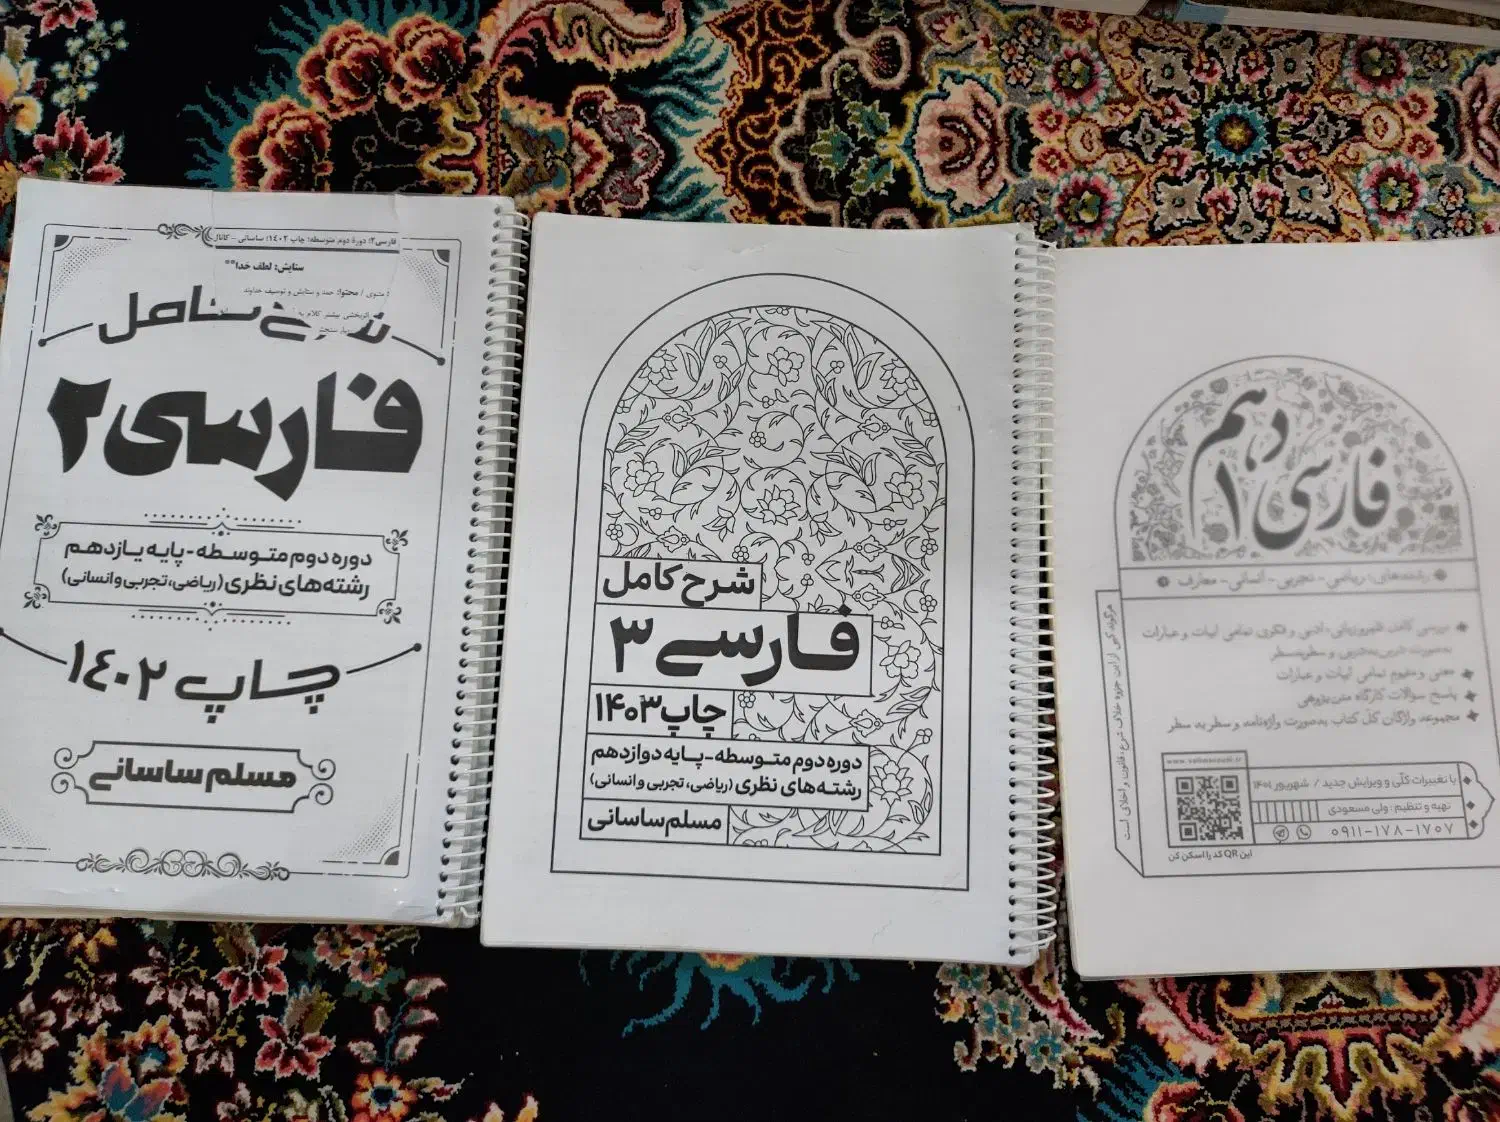 فارسی۲؛ دورۀ دوم متوسطه؛ چاپ ۱٤۰۲؛ ساسانی - کانال
ستایش: لطف خدا**
مثنوی / محتوا: حمد و ستایش و توصیف خداوند
اثربخشی بیشتر کلام به
شرح کامل
فارسی ۲
دوره دوم متوسطه - پایه یازدهم
رشته‌های نظری (ریاضی، تجربی و انسانی)
چاپ ۱٤۰۲
مسلم ساسانی
شرح کامل
فارسی ۳
چاپ ۱۴۰۳
دوره دوم متوسطه - پایه دوازدهم
رشته‌های نظری (ریاضی، تجربی و انسانی)
مسلم ساسانی
فارسی دهم
۱
رشته‌های: ریاضی - تجربی - انسانی - معارف
بررسی کامل قلمروزبانی، ادبی و فکری تمامی ابیات و عبارات
به‌صورت درس‌به‌درس و سطربه‌سطر
معنی و مفهوم تمامی ابیات و عبارات
پاسخ سوالات کارگاه متن‌پژوهی
مجموعه واژگان کل کتاب به‌صورت واژه‌نامه و سطر به سطر
هرگونه کپی از این جزوه خلاف شرع، قانون و اخلاق است
با تغییرات کلّی و ویرایش جدید / شهریور ۱۴۰۱
تهیه و تنظیم: ولی مسعودی
۰۹۱۱-۱۷۸-۱۷۵۷
این QR کد را اسکن کن